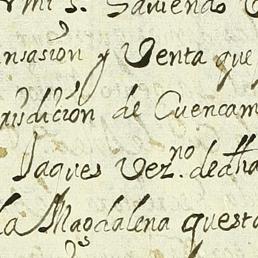 mi s. Saviendo
nsasion y Venta que
urisdicion de Cuencam
Jaques Vez.no de dha
la Magdalena questa